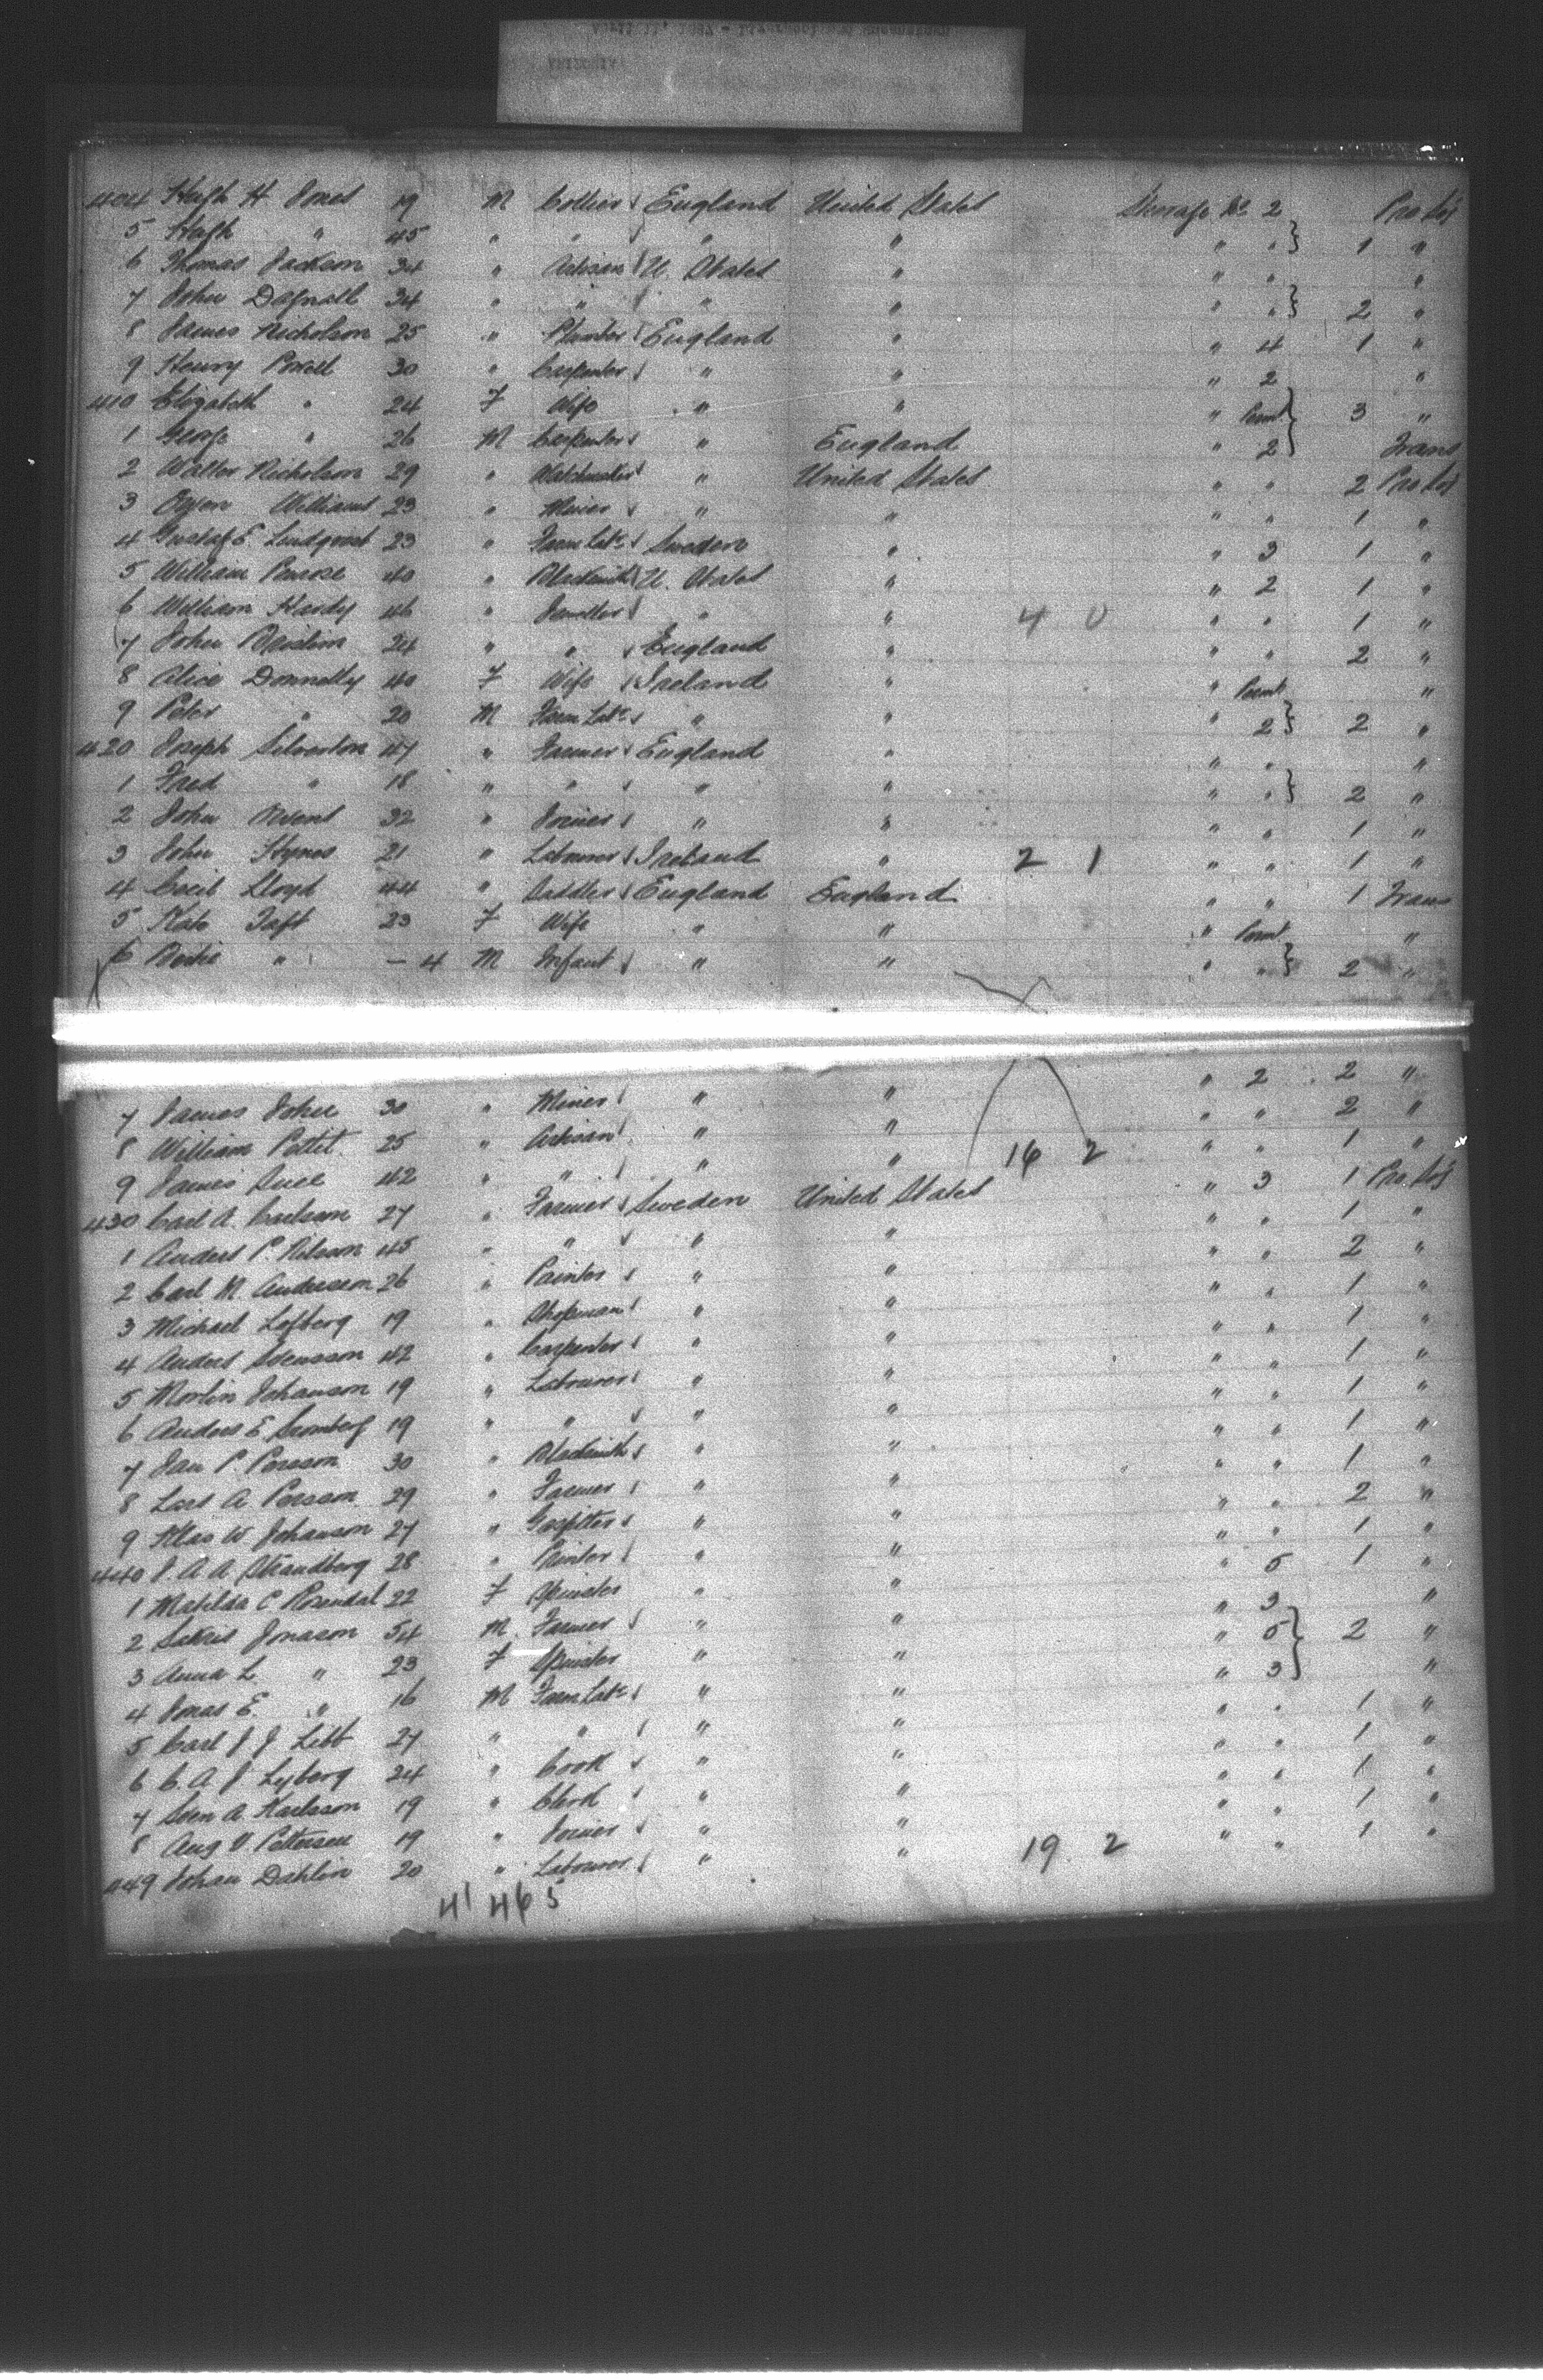 404 Hugh H Jones 19 M Collier England United States Steerage No. 2 Pro Soj
5 Hugh " 45 " " " " " " } 1 "
6 Thomas Jackson 34 " Artisan U. States " " " "
7 John Dagnall 34 " " " " " " } 2 "
8 James Nicholson 25 " England " " 4 1 "
9 Henry Powell 30 " Carpenter " " " 2 "
410 Elizabeth " 24 F Wife " " " } 3 "
1 George " 26 M Carpenter " England " 2 Trans
2 Walter Nicholson 29 " Watchmaker " United States " " 2 Pro Soj
3 Owen Williams 23 " Miner " " " " 1 "
4 Gustaf E. Lindqvist 23 " Farm Labr Sweden " " 3 1 "
5 William 40 " Blacksmith U. States " " 2 1 "
6 William Hardy 46 " Jeweller " " 4 0 " " 1 "
7 John 24 " " England " " " 2 "
8 Alice Donnelly 40 F Wife Ireland " " "
9 Peter " 20 M Farm Labr " " " 2 } 2 "
420 Joseph Silverton 47 " Farmer England " " " "
1 Fred " 18 " " " " " " } 2 "
2 John 32 " Joiner " " " " 1 "
3 John Hynes 21 " Labourer Ireland " 2 1 " " 1 "
4 Cecil Lloyd 44 " Saddler England England " " 1 Trans
5 Kate Taft 23 F Wife " " " "
6 " — 4 M Infant " " " " } 2 "
" 2 2 "
7 James John 30 " Miner " " " " 2 "
8 William Pettit 25 " Artisan " " 16 2 " " 1 "
9 James 42 " " " "
430 Carl A. Carlson 27 " Farmer Sweden United States " 3 1 Pro. Soj
1 Anders P. Nilsson 45 " " " " " " 1 "
2 Carl M. Andersson 26 " Painter " " " " 2 "
3 Michael Lofberg 19 " Shopman " " " " 1 "
4 Anders Svensson 42 " Carpenter " " " " 1 "
5 Martin Johanson 19 " Labourer " " " " 1 "
6 Anders E Stromberg 19 " " " " " " 1 "
7 Jan P. Persson 30 " Blacksmith " " " " 1 "
8 Lars A Persson 29 " Farmer " " " " 1 "
9 Klas W Johanson 27 " Gasfitter " " " " 2 "
440 J. A A Strandberg 28 " Printer " " " " 1 "
1 Matilda C Rosendal 22 F Spinster " " " 5 1 "
2 Jonason 54 M. Farmer " " " 3 "
3 Anna L " 23 F Spinster " " " 5 } 2 "
4 Jonas E. " 16 M Farm Labr " " " 3 "
5 Carl J J 27 " " " " " " 1 "
6 C. A J Lyberg 24 " Cook " " " " 1 "
7 Sven A. Karlsson 19 " Clerk " " " " 1 "
8 Aug V Petterson 19 " Joiner " " " " 1 "
449 Johan Dahlin 20 " Labourer " " 19 2 " " 1 "
41 46 5